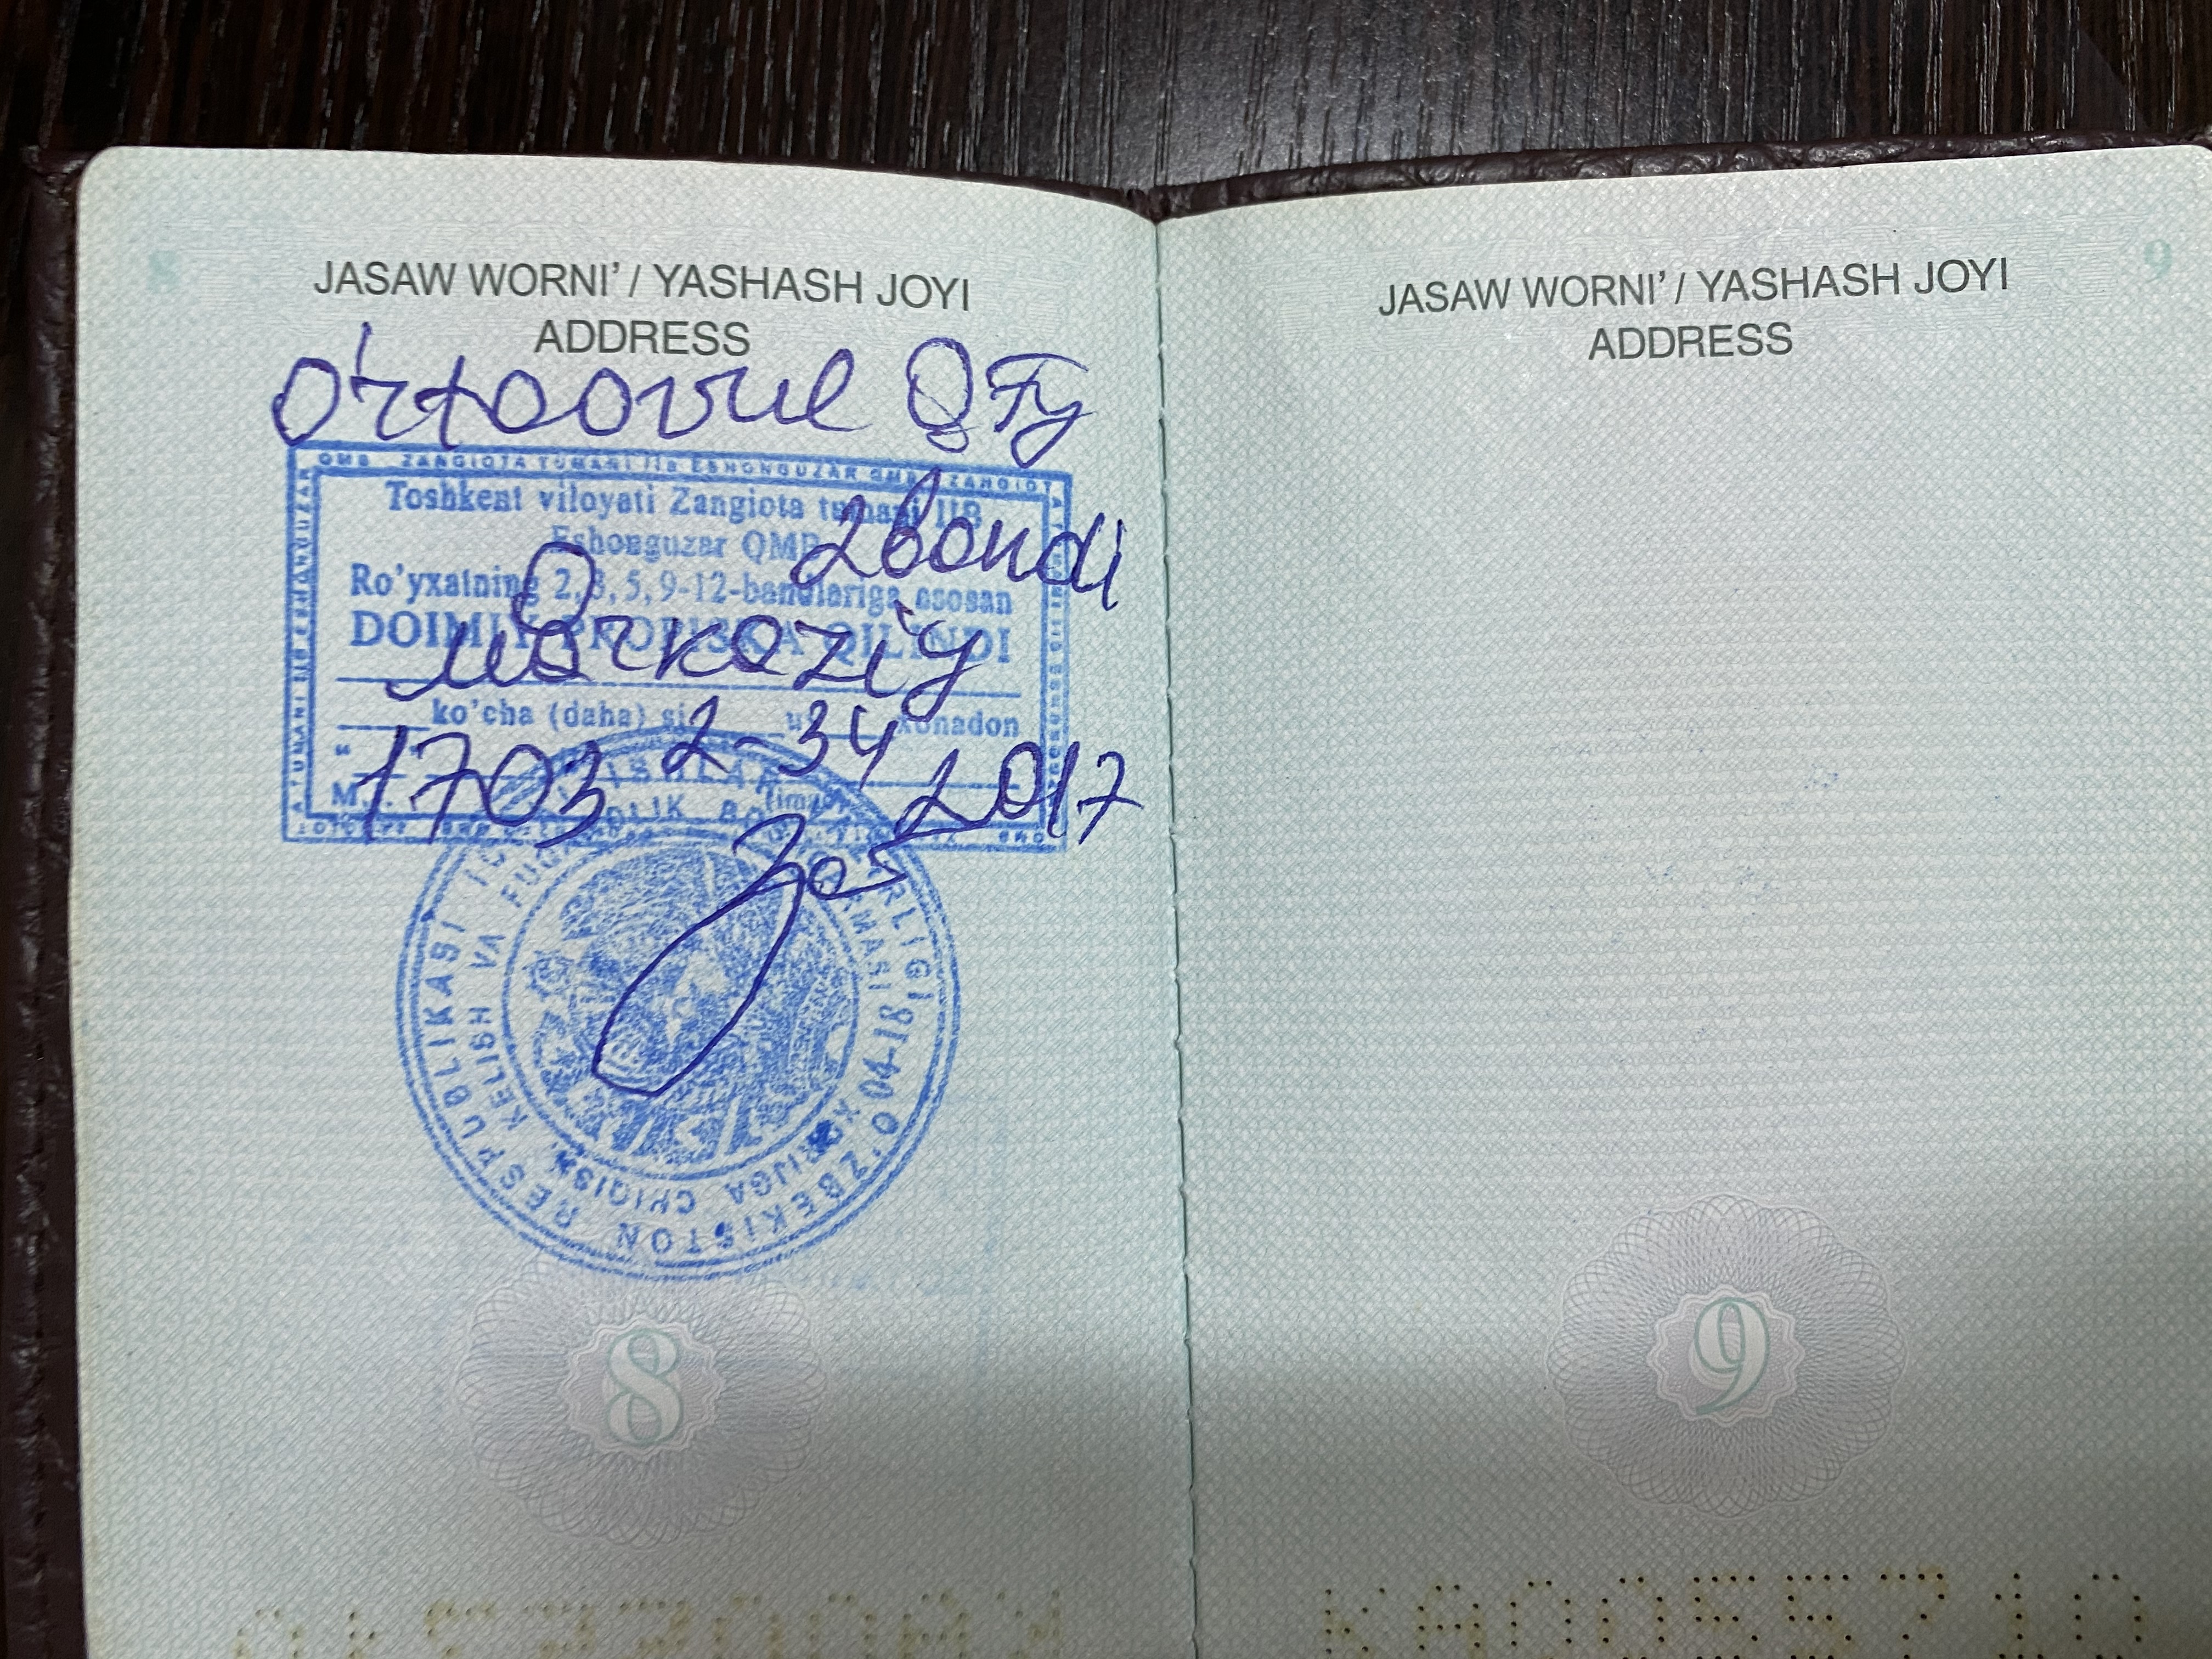 8
JASAW WORNI' / YASHASH JOYI
ADDRESS
O'rtaovul QFY
QMB ZANGIOTA TUMANI IIB ESHONGUZAR QMB ZANGIOTA
Toshkent viloyati Zangiota tumani IIB
Eshonguzar QMB
2 bandi
Ro'yxatning 2, 3, 5, 9-12-bandlariga asosan
DOIMIY PROPISKA QILINDI
Markaziy
ko'cha (daha) si uy xonadon
2-34
1703 2017
(imzo)
O'ZBEKISTON RESPUBLIKASI
KELISH VA FUQAROLIK
CHIQISH
04-18
8
9
JASAW WORNI' / YASHASH JOYI
ADDRESS
9
KA0055710